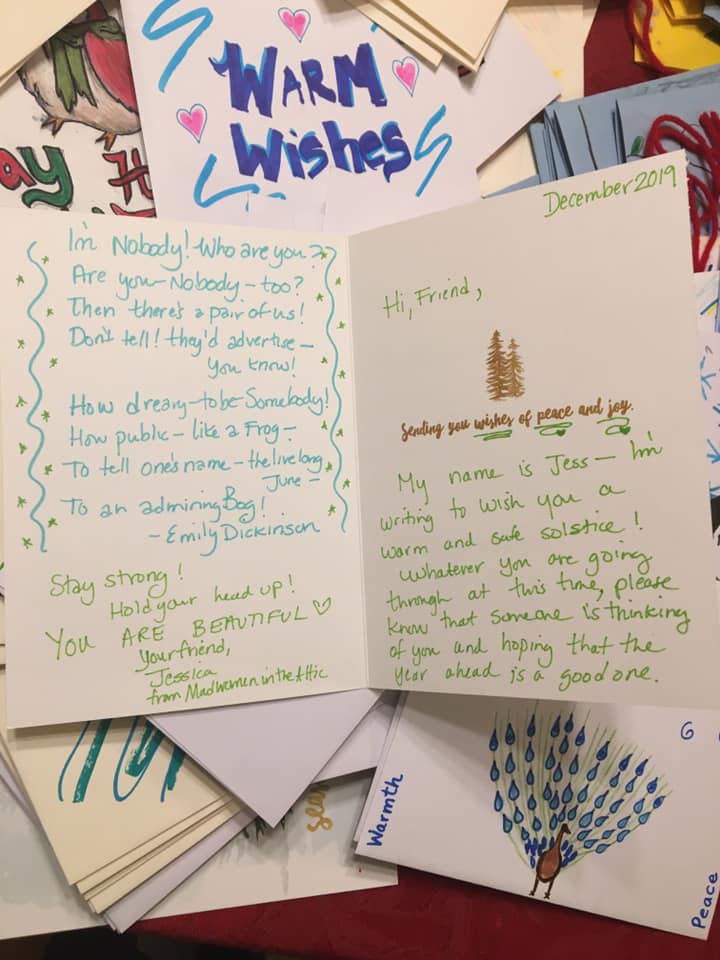 WARM
Wishes
ay
December 2019
I'm Nobody! Who are you?
Are you – Nobody – too?
Then there's a pair of us!
Don't tell! they'd advertise –
you know!
How dreary – to be – Somebody!
How public – like a Frog –
To tell one's name – the livelong
June –
To an admiring Bog!
– Emily Dickinson
Stay strong!
Hold your head up!
YOU ARE BEAUTIFUL
your friend,
Jessica
from Madwomen in the Attic
Hi, Friend,
Sending you wishes of peace and joy.
My name is Jess – I'm
writing to wish you a
warm and safe solstice!
Whatever you are going
through at this time, please
know that someone is thinking
of you and hoping that the
year ahead is a good one.
Warmth
G
Peace